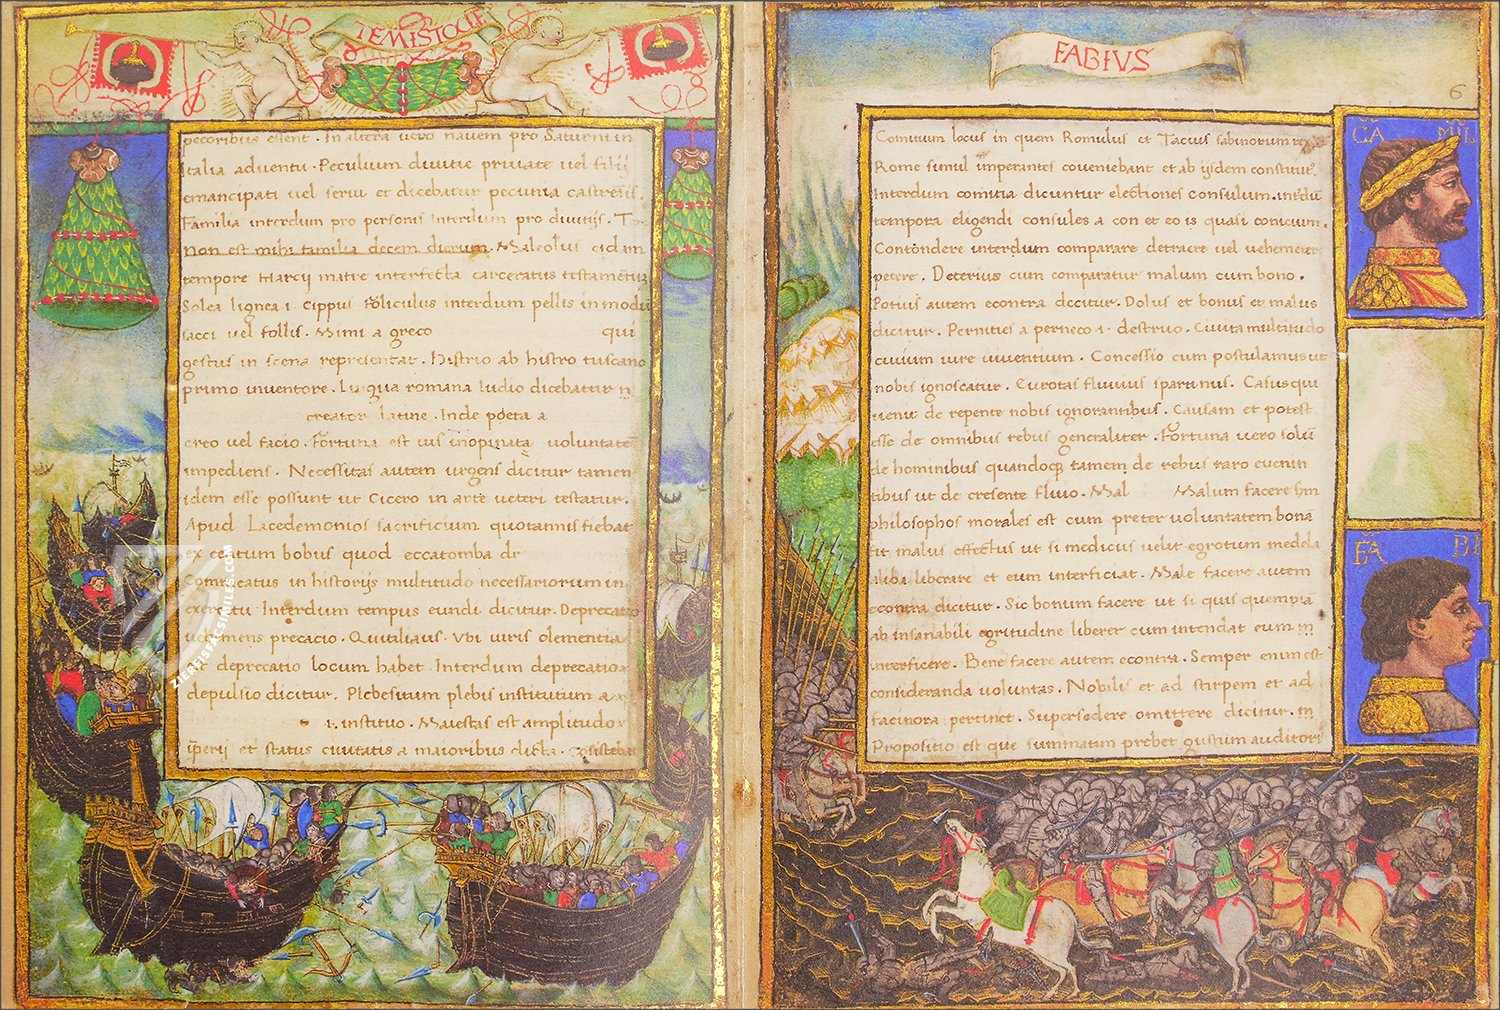 TEMISTOCLE
pecoribus essent. In altera vero navem pro Saturni in
Italia adventu. Peculium divitie private vel filij
emancipati vel servi et dicebatur pecunia castrẽsis.
Familia interdum pro personis interdum pro divitijs. Ter
non est mihi familia decem dierum. Maleolus eidem
tempore Marcij matre interfecta carceratus testamẽtũ
Solea lignea i. cippus folliculus interdum pellis in modũ
sacci vel follis. Mimi a greco qui
gestus in scena representat. Histrio ab histro tuscano
primo inventore. Lingua romana ludio dicebatur
creator latine. Inde poeta a
creo vel facio. Fortuna est vis inopinata voluntatẽ
impediens. Necessitas autem urgens dicitur tamen
idem esse possunt ut Cicero in arte veteri testatur.
Apud Lacedemonios sacrificium quotannis fiebat
ex centum bobus quod eccatomba dr
Commeatus in historijs multitudo necessariorum in
exercitu Interdum tempus eundi dicitur. Deprecatio
vehemens precacio. Quitilianus. Ubi iuris clementia
deprecatio locum habet. Interdum deprecatio
depulsio dicitur. Plebesitum plebis institutum a
i. instituo. Maiestas est amplitudo
ĩperij et status civitatis a maioribus dicta. Cõsistebat
FABIVS
6
Comitium locus in quem Romulus et Tacius sabinorum rex
Rome simul imperantes coveniebant et ab ijsdem constitutꝰ.
Interdum comitia dicuntur electiones consulum. interdũ
tempora eligendi consules a con et eo is quasi conitium.
Contendere interdum comparare detraere vel vehementer
petere. Deterius cum comparatur malum cum bono.
Potius autem econtra dicitur. Dolus et bonus et malus
dicitur. Pernities a perneco i. destruo. Civita multitudo
civium iure viventium. Concessio cum postulamus ut
nobis ignoscatur. Eurotas fluvius spartinus. Casus qui
venit de repente nobis ignorantibus. Causam et potest
esse de omnibus rebus generaliter. Fortuna vero solũ
de hominibus quandoqȝ tamem de rebus raro evenin
tibus ut de cresente fluvio. Mal Malum facere sm
philosophos morales est cum preter voluntatem bona
fit malus effectus ut si medicus velit egrotum medela
aliqua liberare et eum interficiat. Male facere autem
econtra dicitur. Sic bonum facere ut si quis quempiã
ab insanabili egritudine liberet cum intendat eum in
interficere. Bene facere autem econtra. Semper enim est
consideranda voluntas. Nobilis et ad stirpem et ad
facinora pertinet. Supersedere omittere dicitur. in
Propositio est que summatim prebet gustum auditori
CA MIL
FA BI
ZIEREISFACSIMILES.COM